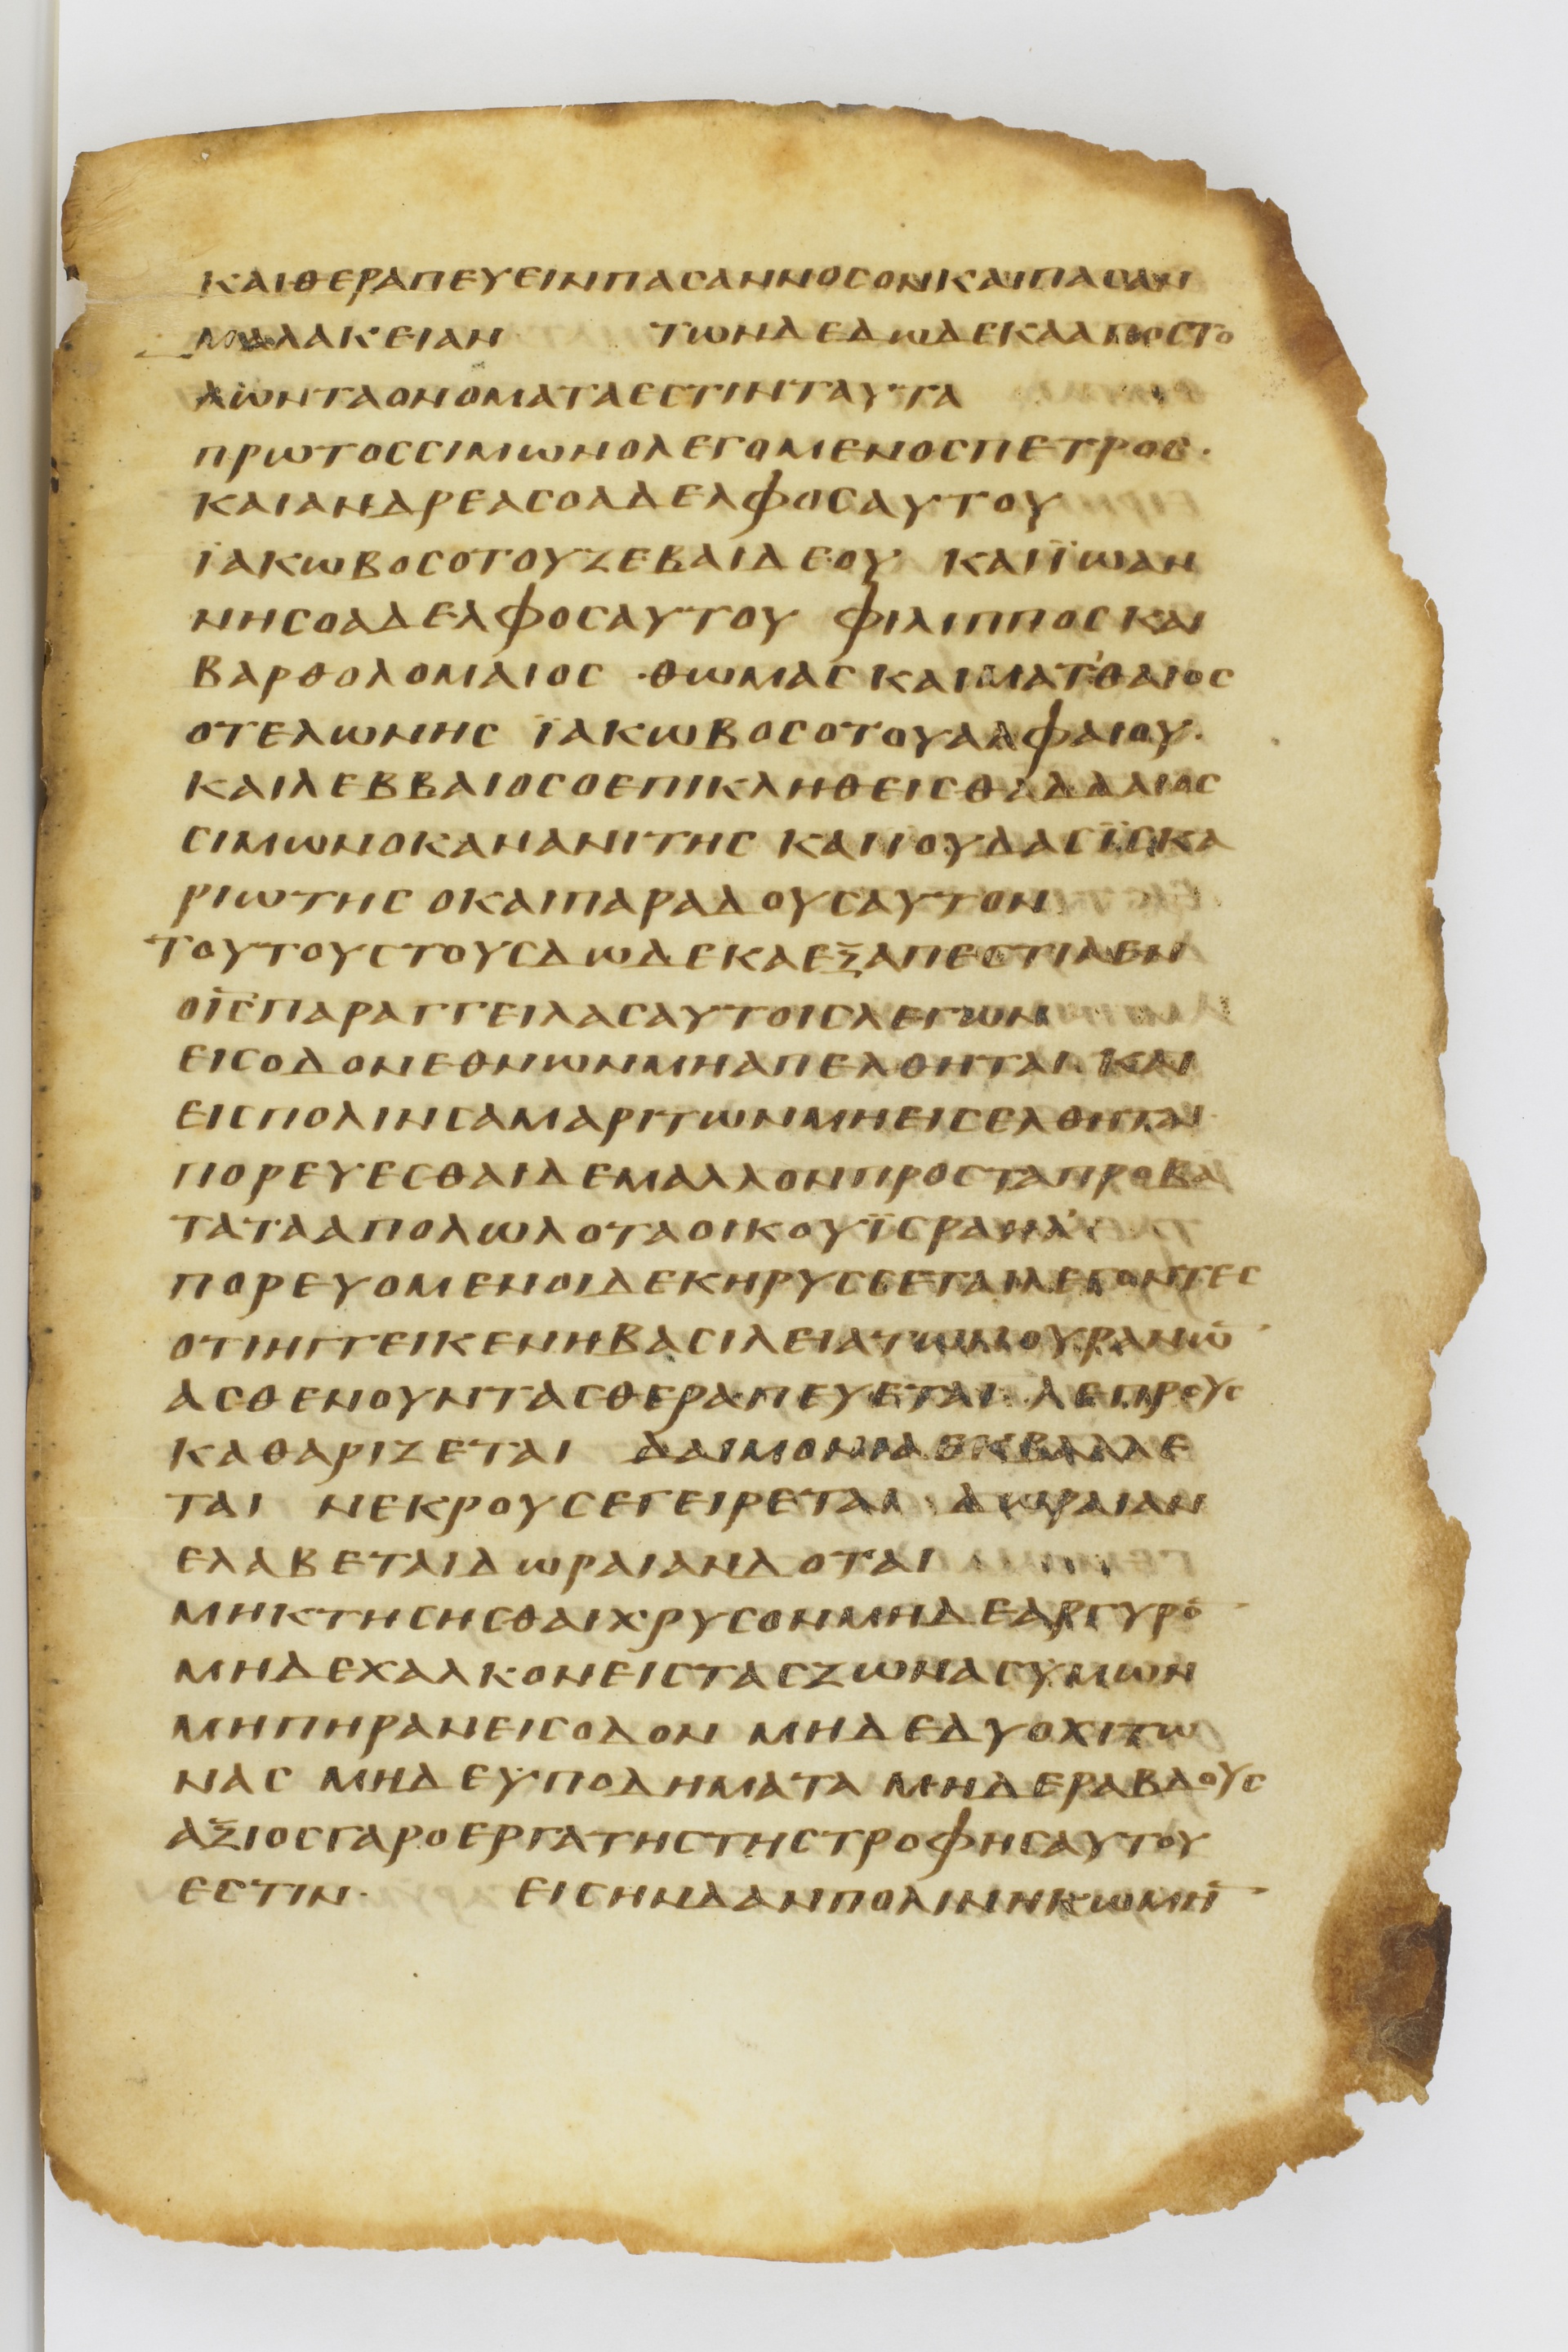 ΚΑΙΘΕΡΑΠΕΥΕΙΝΠΑCΑΝΝΟCΟΝΚΑΙΠΑCΑΝ
ΜΑΛΑΚΕΙΑΝ ΤΩΝΔΕΔΩΔΕΚΑΑΠΟCΤΟ
ΛΩΝΤΑΟΝΟΜΑΤΑΕCΤΙΝΤΑΥΤΑ
ΠΡΩΤΟCCΙΜΩΝΟΛΕΓΟΜΕΝΟCΠΕΤΡΟC·
ΚΑΙΑΝΔΡΕΑCΟΑΔΕΛΦΟCΑΥΤΟΥ
ΪΑΚΩΒΟCΟΤΟΥΖΕΒΑΙΔΕΟΥ ΚΑΙΪΩΑΝ
ΝΗCΟΑΔΕΛΦΟCΑΥΤΟΥ ΦΙΛΙΠΠΟCΚΑΙ
ΒΑΡΘΟΛΟΜΑΙΟC ·ΘΩΜΑCΚΑΙΜΑΤ'ΘΑΙΟC
ΟΤΕΛΩΝΗC ΪΑΚΩΒΟCΟΤΟΥΑΛΦΑΙΟΥ·
ΚΑΙΛΕΒΒΑΙΟCΟΕΠΙΚΛΗΘΕΙCΘΑΔΔΑΙΟC
CΙΜΩΝΟΚΑΝΑΝΙΤΗC ΚΑΙΙΟΥΔΑCΪCΚΑ
ΡΙΩΤΗC ΟΚΑΙΠΑΡΑΔΟΥCΑΥΤΟΝ
ΤΟΥΤΟΥCΤΟΥCΔΩΔΕΚΑΕΞΑΠΕCΤΙΛΕΝ
ΟΙ̅C̅ΠΑΡΑΓΓΕΙΛΑCΑΥΤΟΙCΛΕΓΩΝ
ΕΙCΟΔΟΝΕΘΝΩΝΜΗΑΠΕΛΘΗΤΑΙ ΚΑΙ
ΕΙCΠΟΛΙΝCΑΜΑΡΙΤΩΝΜΗΕΙCΕΛΘΗΤΑΙ
ΠΟΡΕΥΕCΘΑΙΔΕΜΑΛΛΟΝΠΡΟCΤΑΠΡΟΒΑ
ΤΑΤΑΑΠΟΛΩΛΟΤΑΟΙΚΟΥΪCΡΑΗΛ'
ΠΟΡΕΥΟΜΕΝΟΙΔΕΚΗΡΥCCΕΤΑΙΛΕΓΟΝΤΕC
ΟΤΙΗΓΓΕΙΚΕΝΗΒΑCΙΛΕΙΑΤΩΝΟΥΡΑΝΩ̅
ΑCΘΕΝΟΥΝΤΑCΘΕΡΑΠΕΥΕΤΑΙ ΛΕΠΡΟΥC
ΚΑΘΑΡΙΖΕΤΑΙ ΔΑΙΜΟΝΙΑΕΚΒΑΛΛΕ
ΤΑΙ ΝΕΚΡΟΥCΕΓΕΙΡΕΤΑΙ ΔΩΡΑΙΑΝ
ΕΛΑΒΕΤΑΙΔΩΡΑΙΑΝΔΟΤΑΙ
ΜΗΚΤΗCΗCΘΑΙΧΡΥCΟΝΜΗΔΕΑΡΓΥΡΟ̅
ΜΗΔΕΧΑΛΚΟΝΕΙCΤΑCΖΩΝΑCΥΜΩΝ
ΜΗΠΗΡΑΝΕΙCΟΔΟΝ ΜΗΔΕΔΥΟΧΙΤΩ
ΝΑC ΜΗΔΕΥΠΟΔΗΜΑΤΑ ΜΗΔΕΡΑΒΔΟΥC
ΑΞΙΟCΓΑΡΟΕΡΓΑΤΗCΤΗCΤΡΟΦΗCΑΥΤΟΥ
ΕCΤΙΝ· ΕΙCΗΝΔΑΝΠΟΛΙΝΗΚΩΜΗ̅